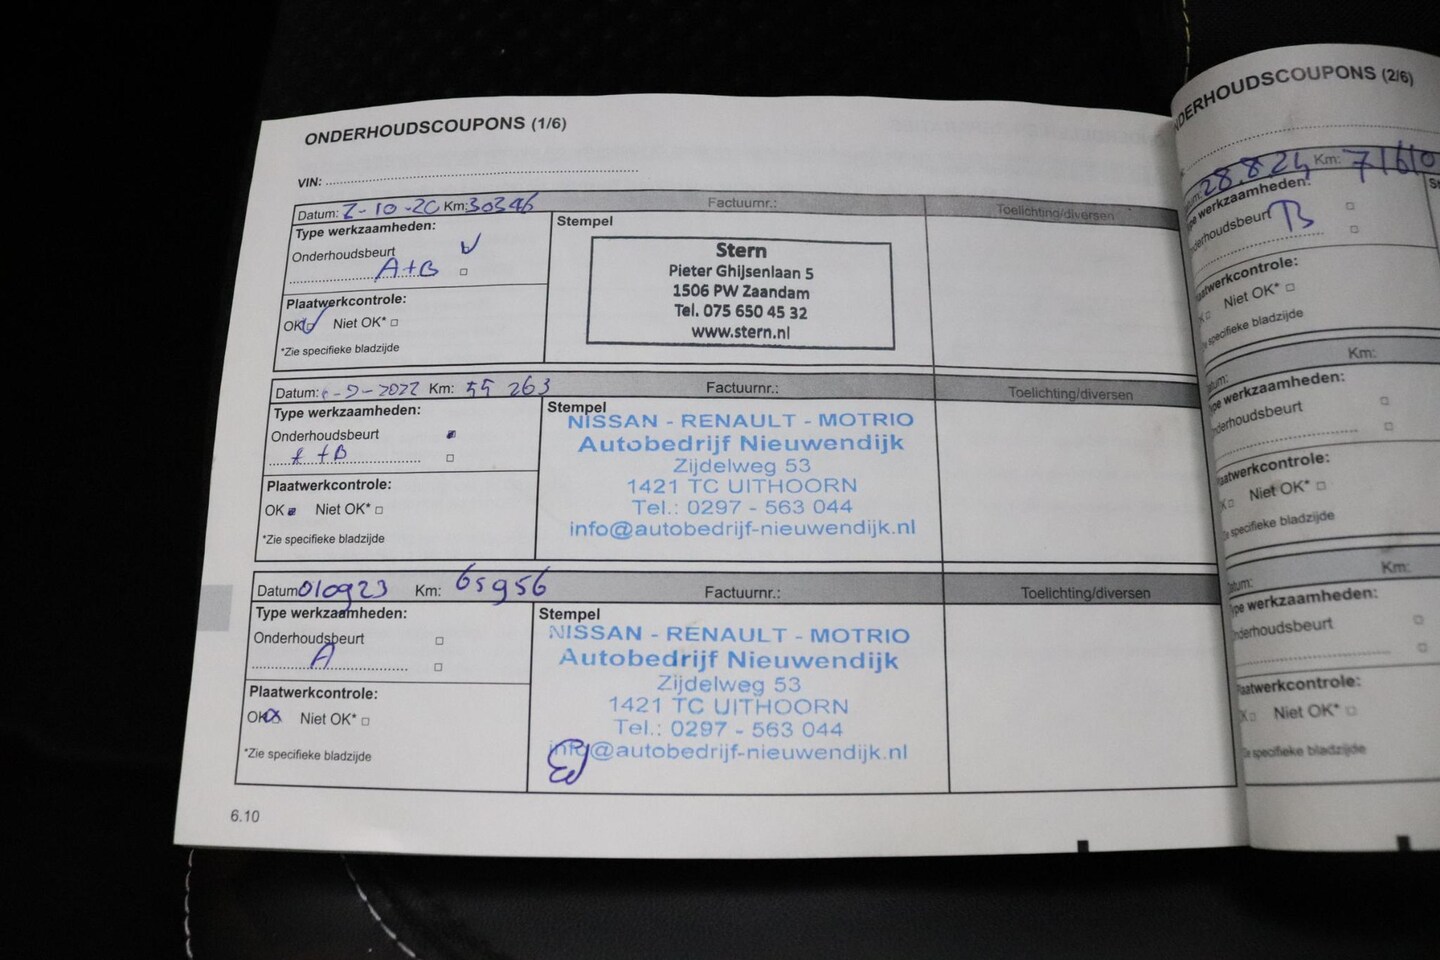 ONDERHOUDSCOUPONS (1/6)
VIN:
Datum: 2-10-20 Km: 30346 Factuurnr.: Toelichting/diversen
Type werkzaamheden:
Onderhoudsbeurt
A+B
Plaatwerkcontrole:
OK Niet OK*
*Zie specifieke bladzijde
Stempel
Stern
Pieter Ghijsenlaan 5
1506 PW Zaandam
Tel. 075 650 45 32
www.stern.nl
Datum: -9-2022 Km: 55 263 Factuurnr.: Toelichting/diversen
Type werkzaamheden:
Onderhoudsbeurt
A +B
Plaatwerkcontrole:
OK Niet OK*
*Zie specifieke bladzijde
Stempel
NISSAN - RENAULT - MOTRIO
Autobedrijf Nieuwendijk
Zijdelweg 53
1421 TC UITHOORN
Tel.: 0297 - 563 044
info@autobedrijf-nieuwendijk.nl
Datum 010923 Km: 65956 Factuurnr.: Toelichting/diversen
Type werkzaamheden:
Onderhoudsbeurt
A
Plaatwerkcontrole:
OK Niet OK*
*Zie specifieke bladzijde
Stempel
NISSAN - RENAULT - MOTRIO
Autobedrijf Nieuwendijk
Zijdelweg 53
1421 TC UITHOORN
Tel.: 0297 - 563 044
info@autobedrijf-nieuwendijk.nl
6.10
ONDERHOUDSCOUPONS (2/6)
28.8.24 Km: 71610
Type werkzaamheden:
Onderhoudsbeurt B
Plaatwerkcontrole:
Niet OK*
specifieke bladzijde
Datum: Km:
Type werkzaamheden:
Onderhoudsbeurt
Plaatwerkcontrole:
Niet OK*
Zie specifieke bladzijde
Datum: Km:
Type werkzaamheden:
Onderhoudsbeurt
Plaatwerkcontrole:
Niet OK*
Zie specifieke bladzijde